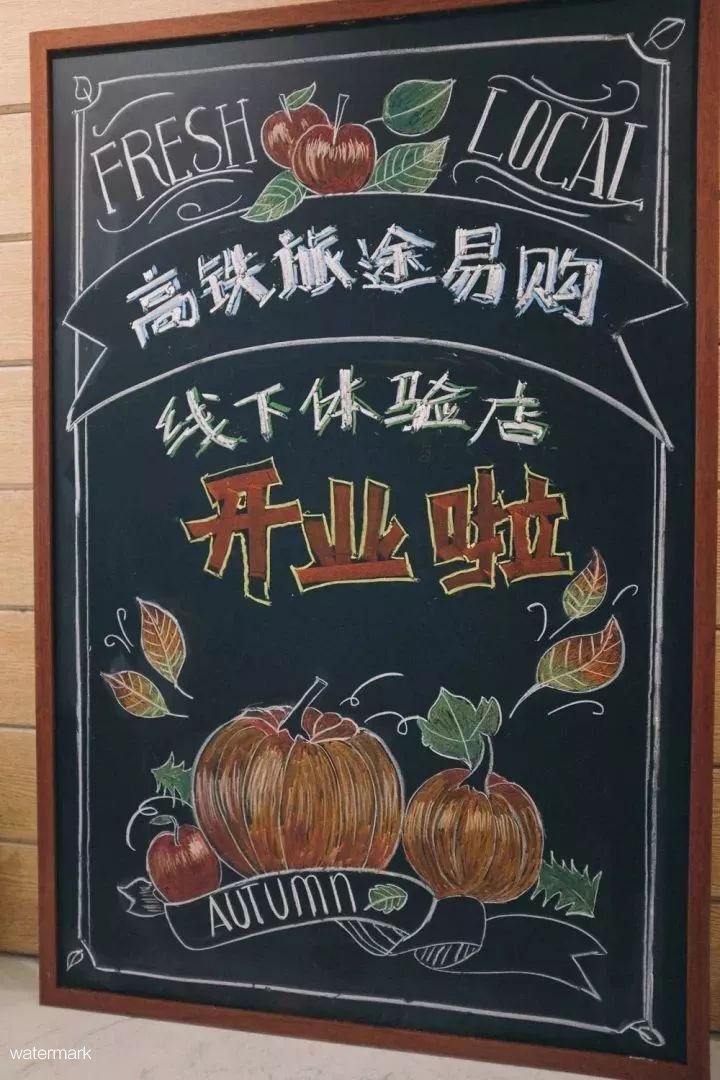 FRESH LOCAL
高铁旅途易购
线下体验店
开业啦
AUTUMN
watermark